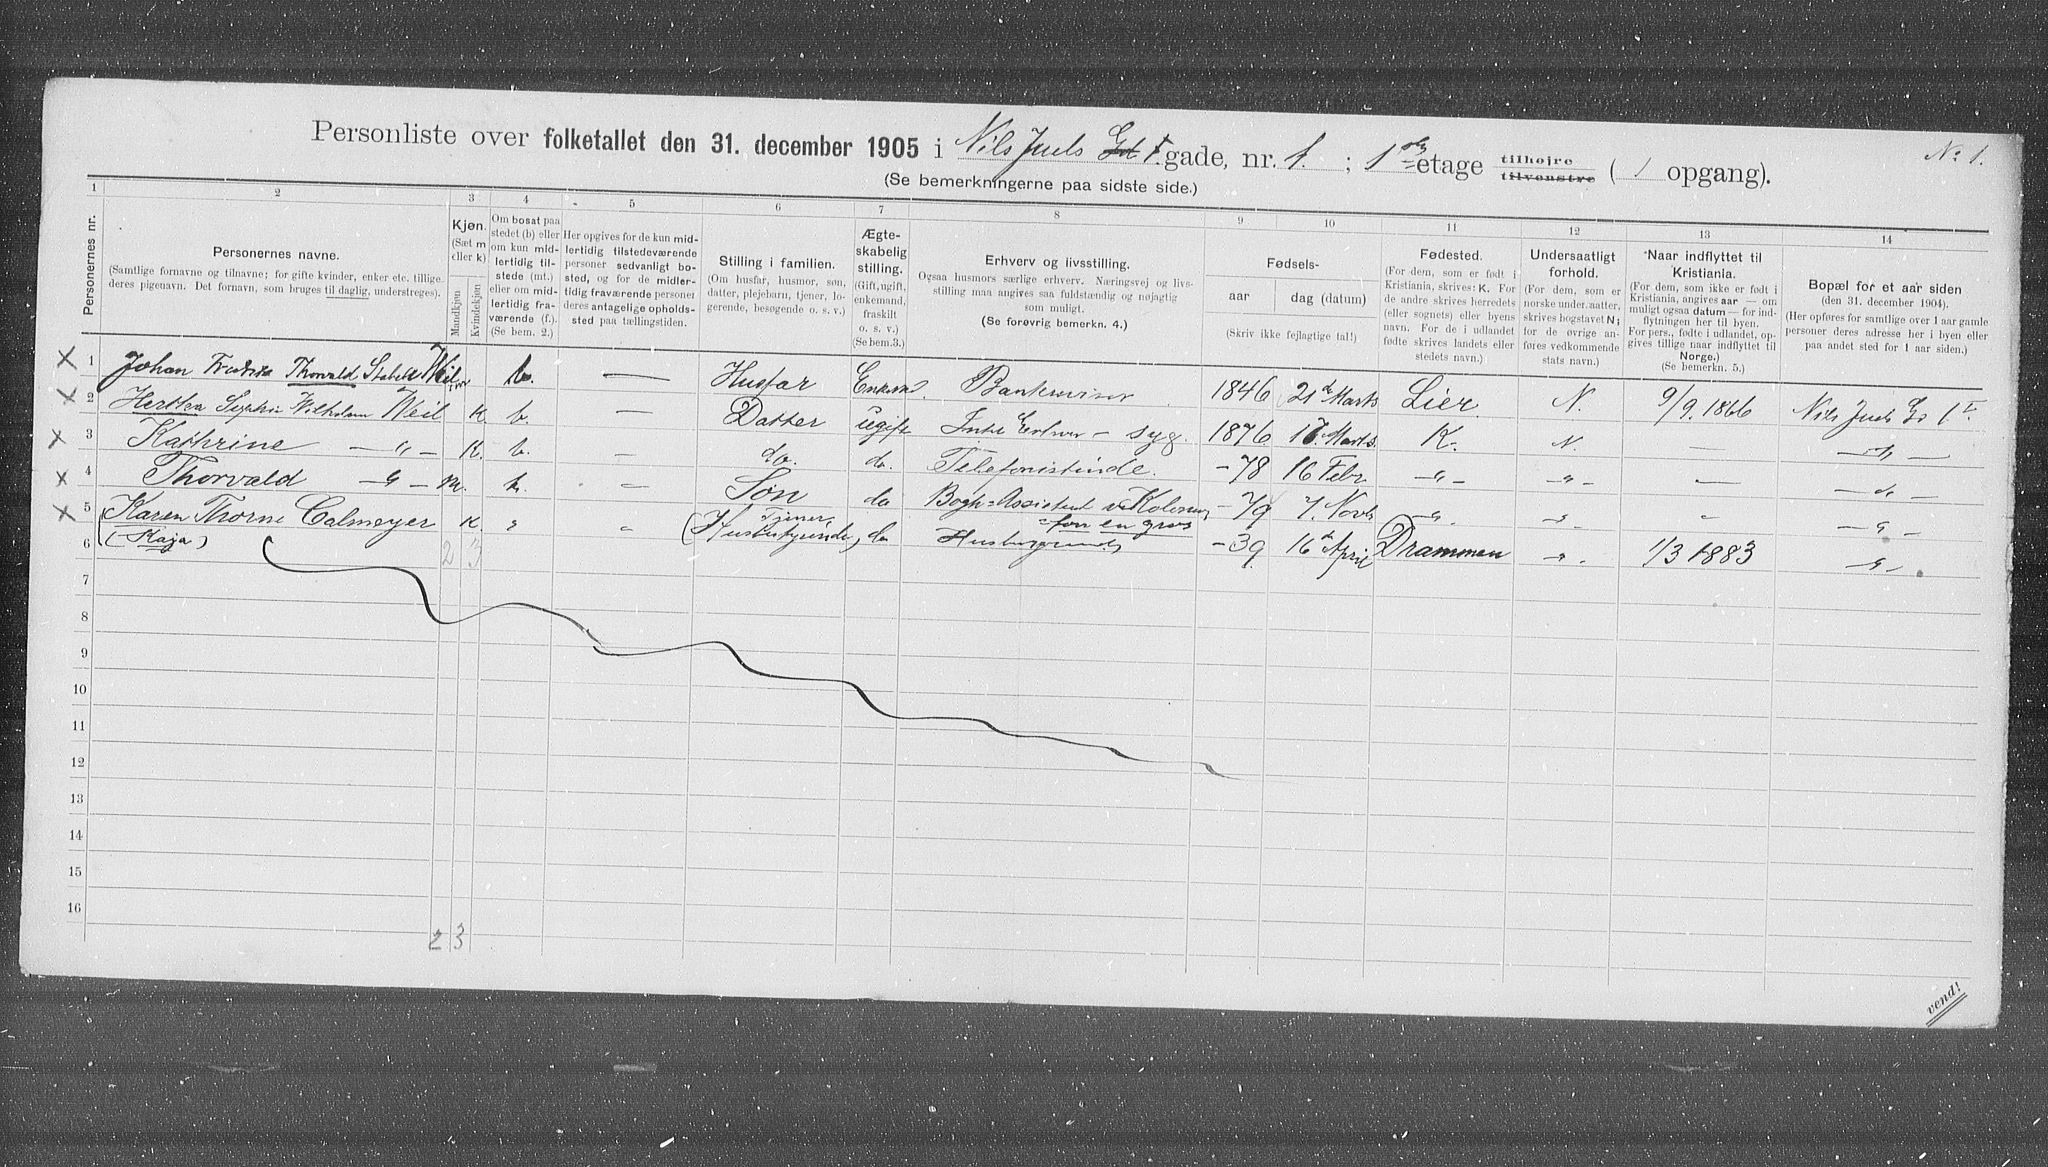 Personliste over folketallet den 31. december 1905 i Nils Juels Gd 1. gade, nr. 1. ; 1ste etage tilhøjre tilvenstre ( 1 opgang). No 1.
(Se bemerkningerne paa sidste side.)
1 2 3 4 5 6 7 8 9 10 11 12 13 14
Personernes nr.
Personernes navne.
(Samtlige fornavne og tilnavne; for gifte kvinder, enker etc. tillige deres pigenavn. Det fornavn, som bruges til daglig, understreges).
Kjøn.
(Sæt m eller k)
Mandkjøn
Kvindekjøn
Om bosat paa stedet (b) eller om kun midlertidig tilstede (mt.) eller om midlertidig fraværende (f.). (Se bem. 2.)
Her opgives for de kun midlertidig tilstedeværende personer sedvanligt bosted, og for de midlertidig fraværende personer deres antagelige opholdssted paa tællingstiden.
Stilling i familien.
(Om husfar, husmor, søn, datter, plejebarn, tjener, logerende, besøgende o. s. v.)
Ægteskabelig stilling.
(Gift, ugift, enkemand, fraskilt o. s. v.)
(Se bem.3.)
Erhverv og livsstilling.
Ogsaa husmors særlige erhverv. Næringsvej og livsstilling maa angives saa fuldstændig og nøjagtig som muligt.
(Se forøvrig bemerkn. 4.)
Fødsels-
aar
dag (datum)
(Skriv ikke fejlagtige tal!)
Fødested.
(For dem, som er født i Kristiania, skrives: K. For de andre skrives herredets (eller sognets) eller byens navn. For de i udlandet fødte skrives landets eller stedets navn.)
Undersaatligt forhold.
(For dem, som er norske under.aatter, skrives bogstavet N; for de øvrige anføres vedkommende stats navn.)
Naar indflyttet til Kristiania.
(For dem, som ikke er født i Kristiania, angives aar — om muligt ogsaa datum — for indflytningen her til byen. For pers., fødte i udlandet, opgives tillige naar indflyttet til Norge.)
(Se bemerkn. 5.)
Bopæl for et aar siden
(den 31. december 1904).
(Her opføres for samtlige over 1 aar gamle personer deres adresse her i byen eller paa andet sted for 1 aar siden.)
1 Johan Fredrik Thorvald Stabell Weil m b. — Husfar Enkem. Bankrevisor 1846 21de Marts Lier N. 9/9. 1866 Nils Juels Gd 1 I
2 Hertha Sophie Wilhelm Weil K b. — Datter ugift Intet Erhverv - syg. 1876. 17. Marts K. N. — — " —
3 Kathrine — " — K. b. — do. do. Telefonistinde. -78 16 Febr — " — — " — — — " —
4 Thorvald — " — m. b. — Søn do Bogh-Assistent v Kolonialforr en gros -79 7. Novb " " " — " —
5 Karen Thorne Calmeyer K. " " (Tjener, Husbestyrinde) do Husbestyrinde -39 16de April Drammen " 1/3 1883 — " —
(Kaja)
6 2 3
7
8
9
10
11
12
13
14
15
16
2 3
vend!